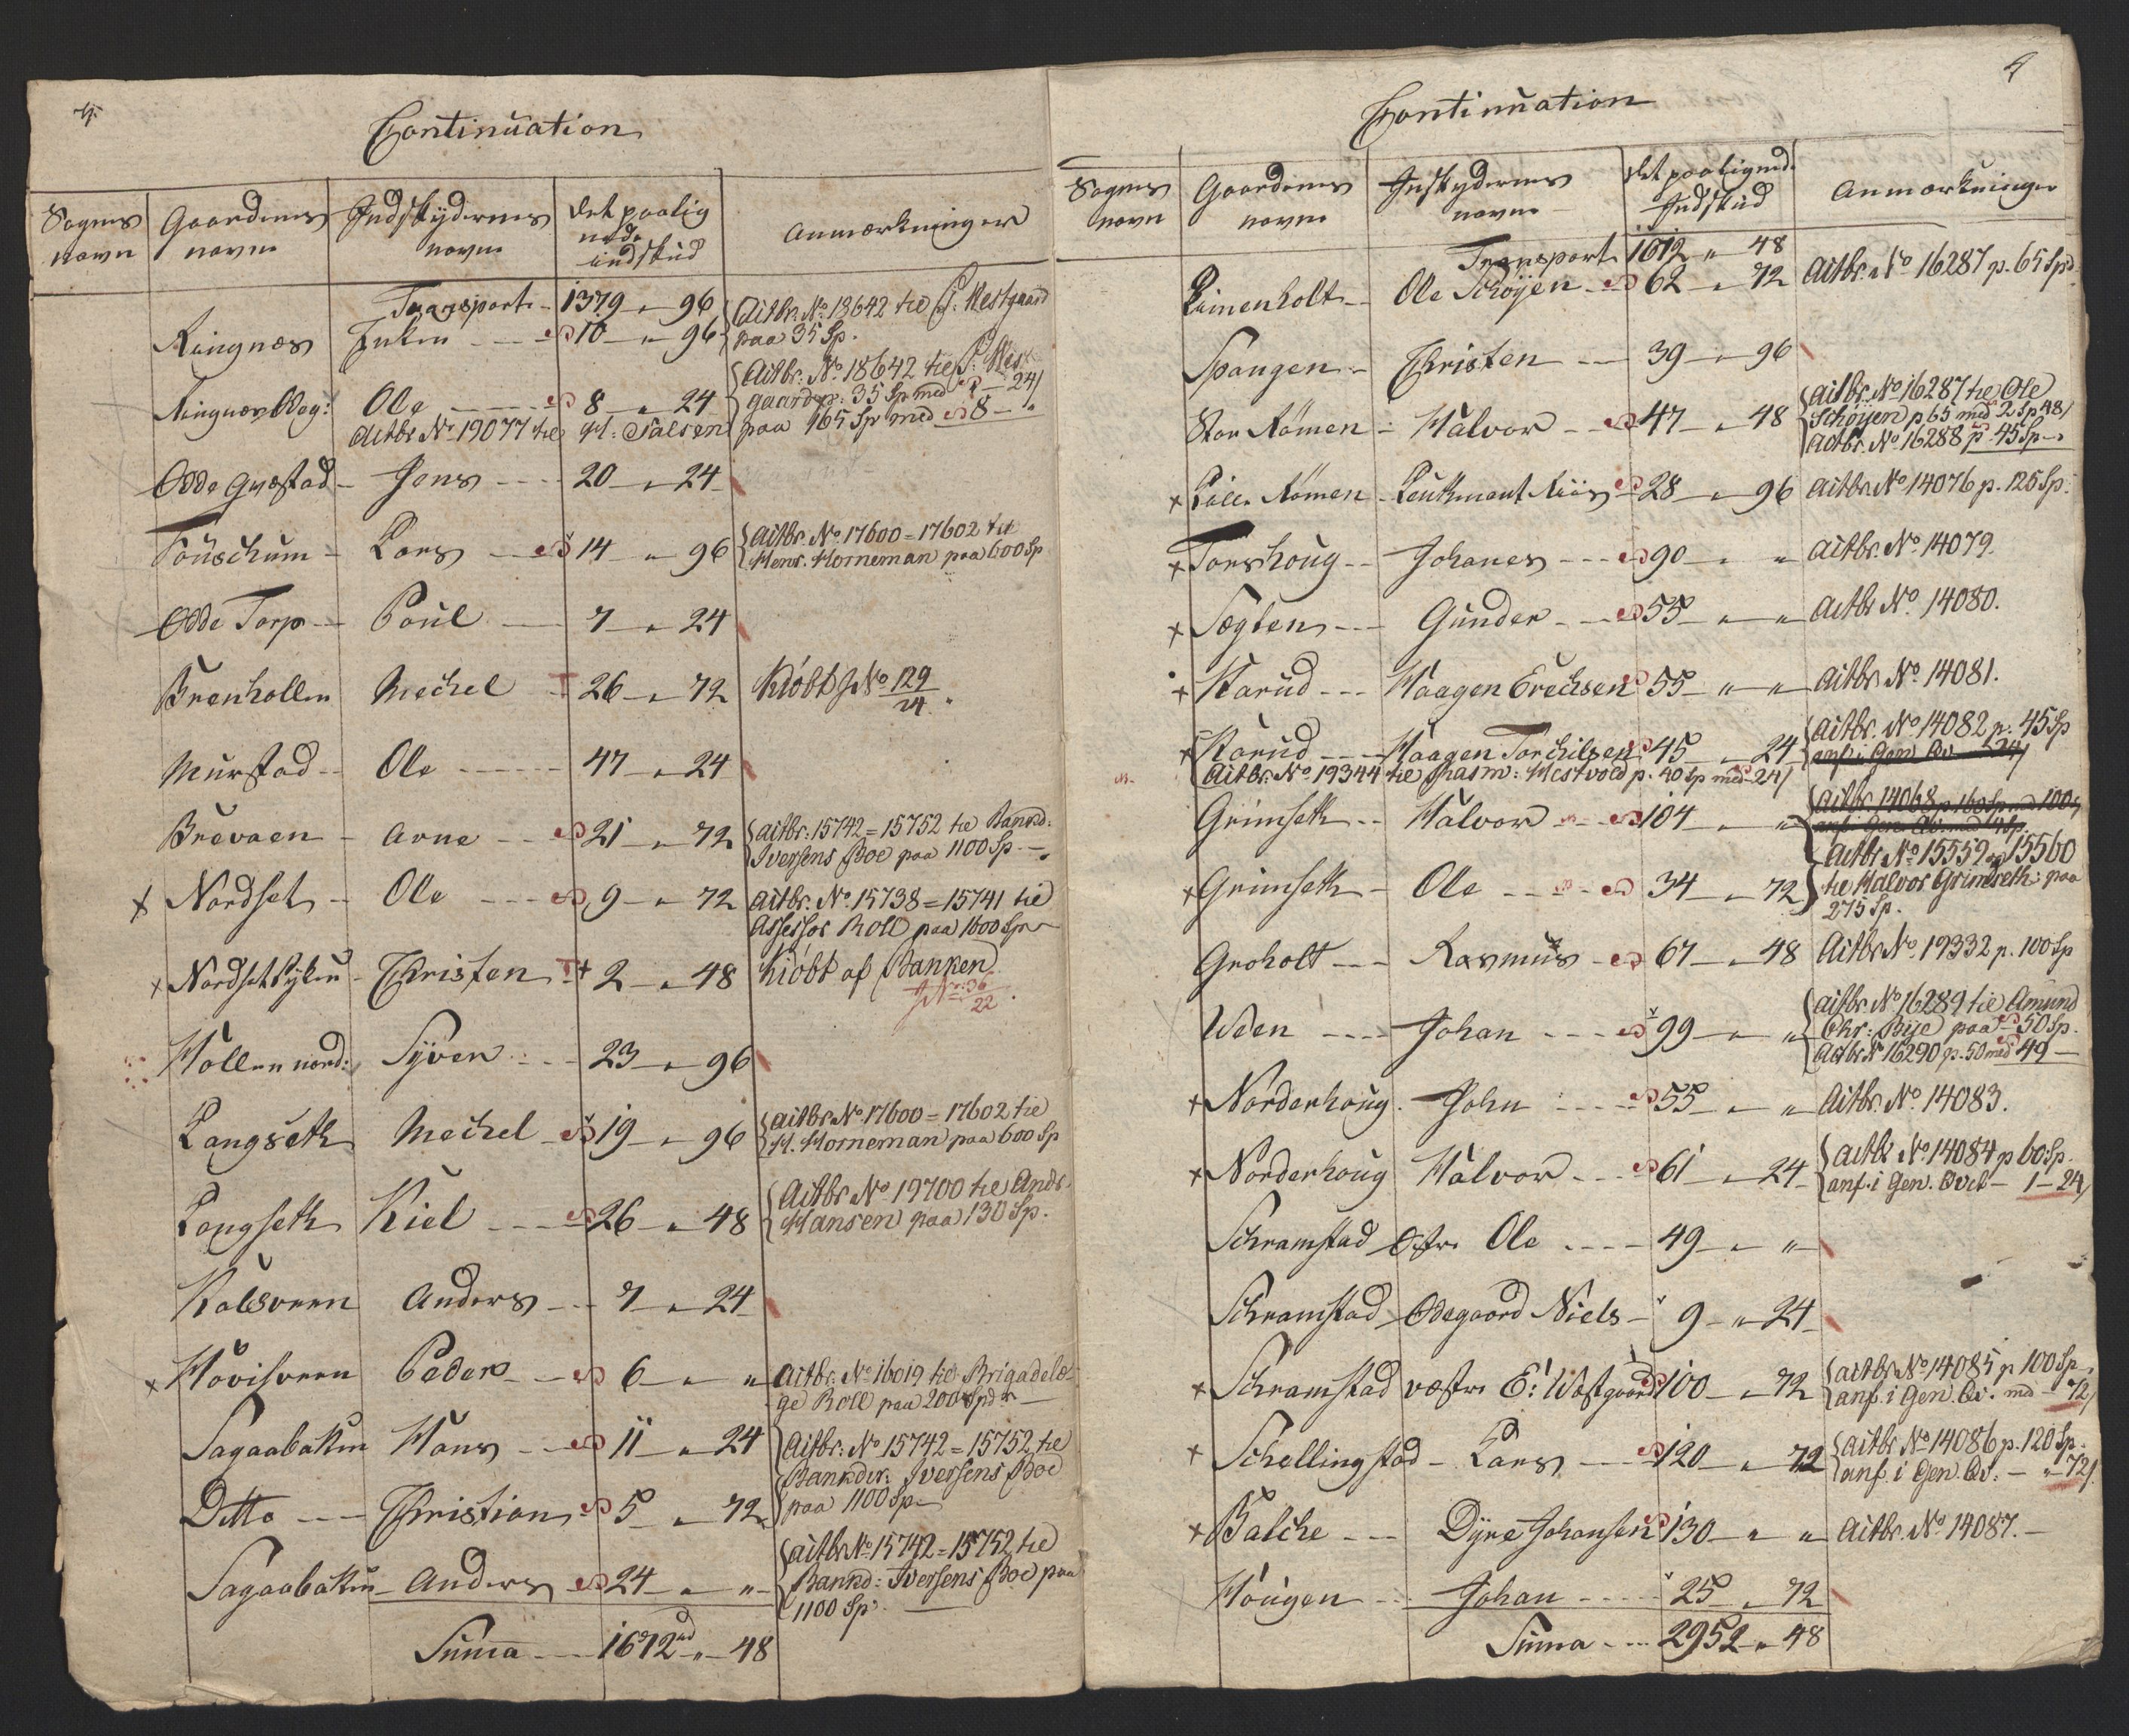 4.
Continuation
Sogners navn | Gaardenes navne | Indskydernes navne | det paalignede indskud | Anmærkninger
Transport - 1379 " 96
Ringnæs Enken - - 10 " 96 Actbr: No 18642 til P. Westgaard
paa 35 Sp.
Actbr: No 18642 til P. West
Ringnæs Ole - - 8 " 24 gaard p: 35 Sp med - 24/
Actbr No 19077 til H: Palsen paa 165 Sp med 8 - "
Odde Græstad - Jens - - 20 " 24
Touschum - Lars - - 14 " 96 Actbr: No 17600 = 17602 til
Henr. Horneman paa 600 Sp
Odde Torp - Poul - 7 " 24
Brenhollen Mechel - 26 " 72 Kiöbt No 129/24
Murstad - Ole - - 47 " 24
Brevaen - Arne - - 21 " 72 Actbr: 15742 = 15752 til Bankd:
Iversens Boe paa 1100 Sp -
x Nordset - Ole - - 9 " 72 Actbr. No 15738 = 15741 til
Assessor Roll paa 1000 Sp
x Nordset Christen 2 " 48 Kiöbt af Banken
No 36/22
Hollen nord: Syver - - 23 " 96
Langseth Mechel - 19 " 96 Actbr No 17600 = 17602 til
H. Horneman paa 600 Sp
Langseth Kiel - - 26 " 48 Actbr No 19700 til Andr.
Hansen paa 130 Sp.
Kalsveen Anders - - 7 " 24
x Hovisveen Peder - - 6 " " Actbr. No 16019 til Brigadelæ-
ge Roll paa 200 Spdr -
Sagaabakken Hans - - 11 " 24 Actbr: No 15742 = 15752 til
Bankdir: Iversens Boe
Ditto - - Christian 5 " 72 paa 1100 Sp -
Sagaabakken - Anders 24 " " Actbr No 15742 = 15752 til
Bankd: Iversens Boe paa
1100 Sp. -
Suma - - 1612 " 48
4
Continuation
Sognes navn | Gaardenes navne | Indskydernes navne | det paalignede Indskud | Anmærkninger
Transport 1612 " 48
Limenholt - Ole Schöyen - 62 " 72 Actbr. No 16287 p. 65 Spd
Spangen - Christen - 39 " 96
Stor Römen - Halvor - - 47 " 48 Actbr. No 16287 til Ole
Schöyen p 65 med 2 Sp 48/
Actbr. No 16288 p 45 Sp -
x Lille Römen - Leutenant Riis 28 " 96 Actbr No 14076 p. 125 Sp:
x Torshoug - - Johanes - - 90 " " Actbr. No 14079.
x Sogten - - Gunder - - 55 " " Actbr No 14080.
x Harud - - Haagen Erechsen 55 " " Actbr No 14081.
x Harud - - Haagen Torchilsen 45 " 24 Actbr. No 14082 p. 45 Sp
anf. i Gen Qv - 24/
Actbr: No 19344 til Rasm: Westvold p. 40 Sp med 24/
Grimseth - - Halvor - - 104 " " Actbr 14068 p 160 Sp med 100
anf i Gen Qv. med 4 Sp.
Actbr No 15559 og 15560
x Grimseth - Ole - - 34 " 72 til Halvor Grimseth: paa
275 Sp.
Groholt - - Rasmus - 67 " 48 Actbr No 19332 p. 100 Sp
Ween - - Johan - - 99 " " Actbr No 16289 til Amund
Chr: Bye paa 50 Sp.
Actbr No 16290 p. 50 med 49 -
x Norderhoug. John - - 55 " " Actbr. No 14083.
x Norderhoug Halvor - - 61 " 24 Actbr No 14084 p 60 Sp.
anf. i Gen. Qvit - 1 - 24/
Schramstad östre Ole - - 49 " "
Schramstad Ödegaard Niels - 9 " 24
x Schramstad vestre E: Westgaard 100 " 72 Actbr No 14085 p 100 Sp
anf. i Gen. Qv. med - 72/
x Schellingstad - Lars - - 120 " 72 Actbr No 14086 p. 120 Sp.
anf. i Gen. Qv: - " 72/
x Balche - - Dyre Johansen 130 " " Actbr. No 14087. -
Hougen - - Johan - - 25 " 72
Suma - - 2952 " 48